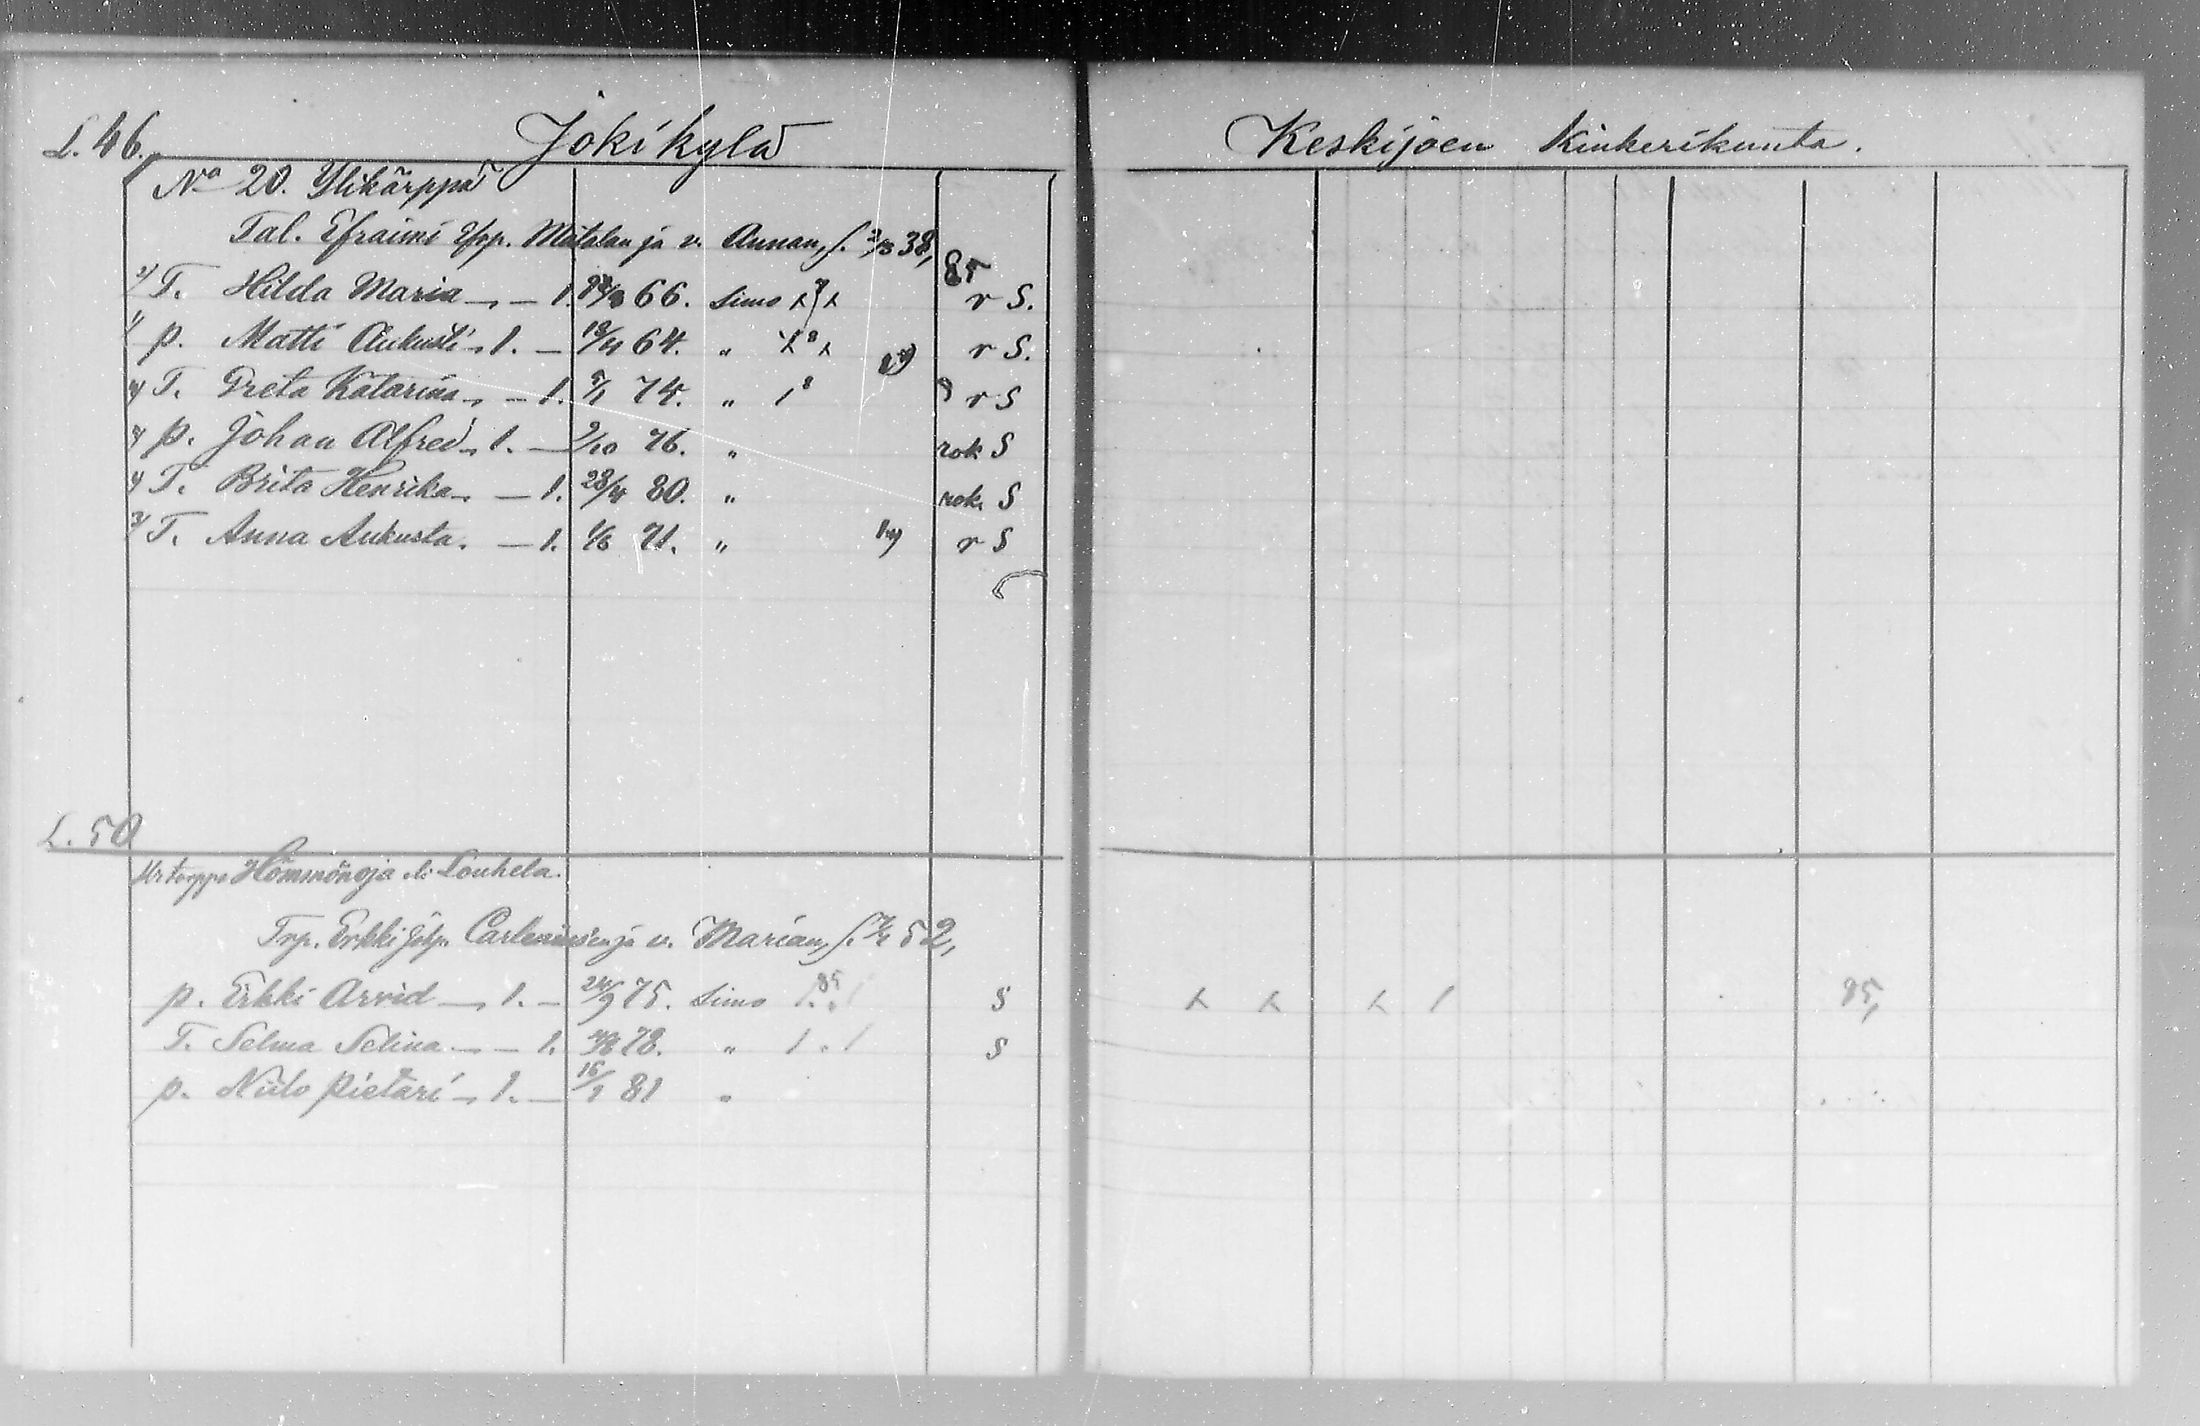 L. 46. Jokikylä Keskijoen Kinkerikunta.
No 20. Ylikärppä
Tal. Efraimi Efrp. Matalan ja v. Annan, s. 38, 85
2) T. Hilda Maria — 1. 66. Simo r S.
1) p. Matti Aukusti 1. — 18/4 64. " r S.
4) T. Greta Katariina — 1. 74. " r S
p. Johan Alfred 1. — 9/10 76. " rok S
T. Brita Henrika — 1. 28/4 80. " rok S
3) T. Anna Aukusta. — 1. 71. " r S
L. 50
Hömmönoja eli Louhela.
Trp. Erkki Carleniusen ja v. Marian, s. 52,
p. Erkki Arvid 1. — 24/9 75. Simo 85 S x x x / 85,
T. Selma Selina — 1. 78. " 1 . / S
p. Niilo Pietari 1. — 16/1 81 "